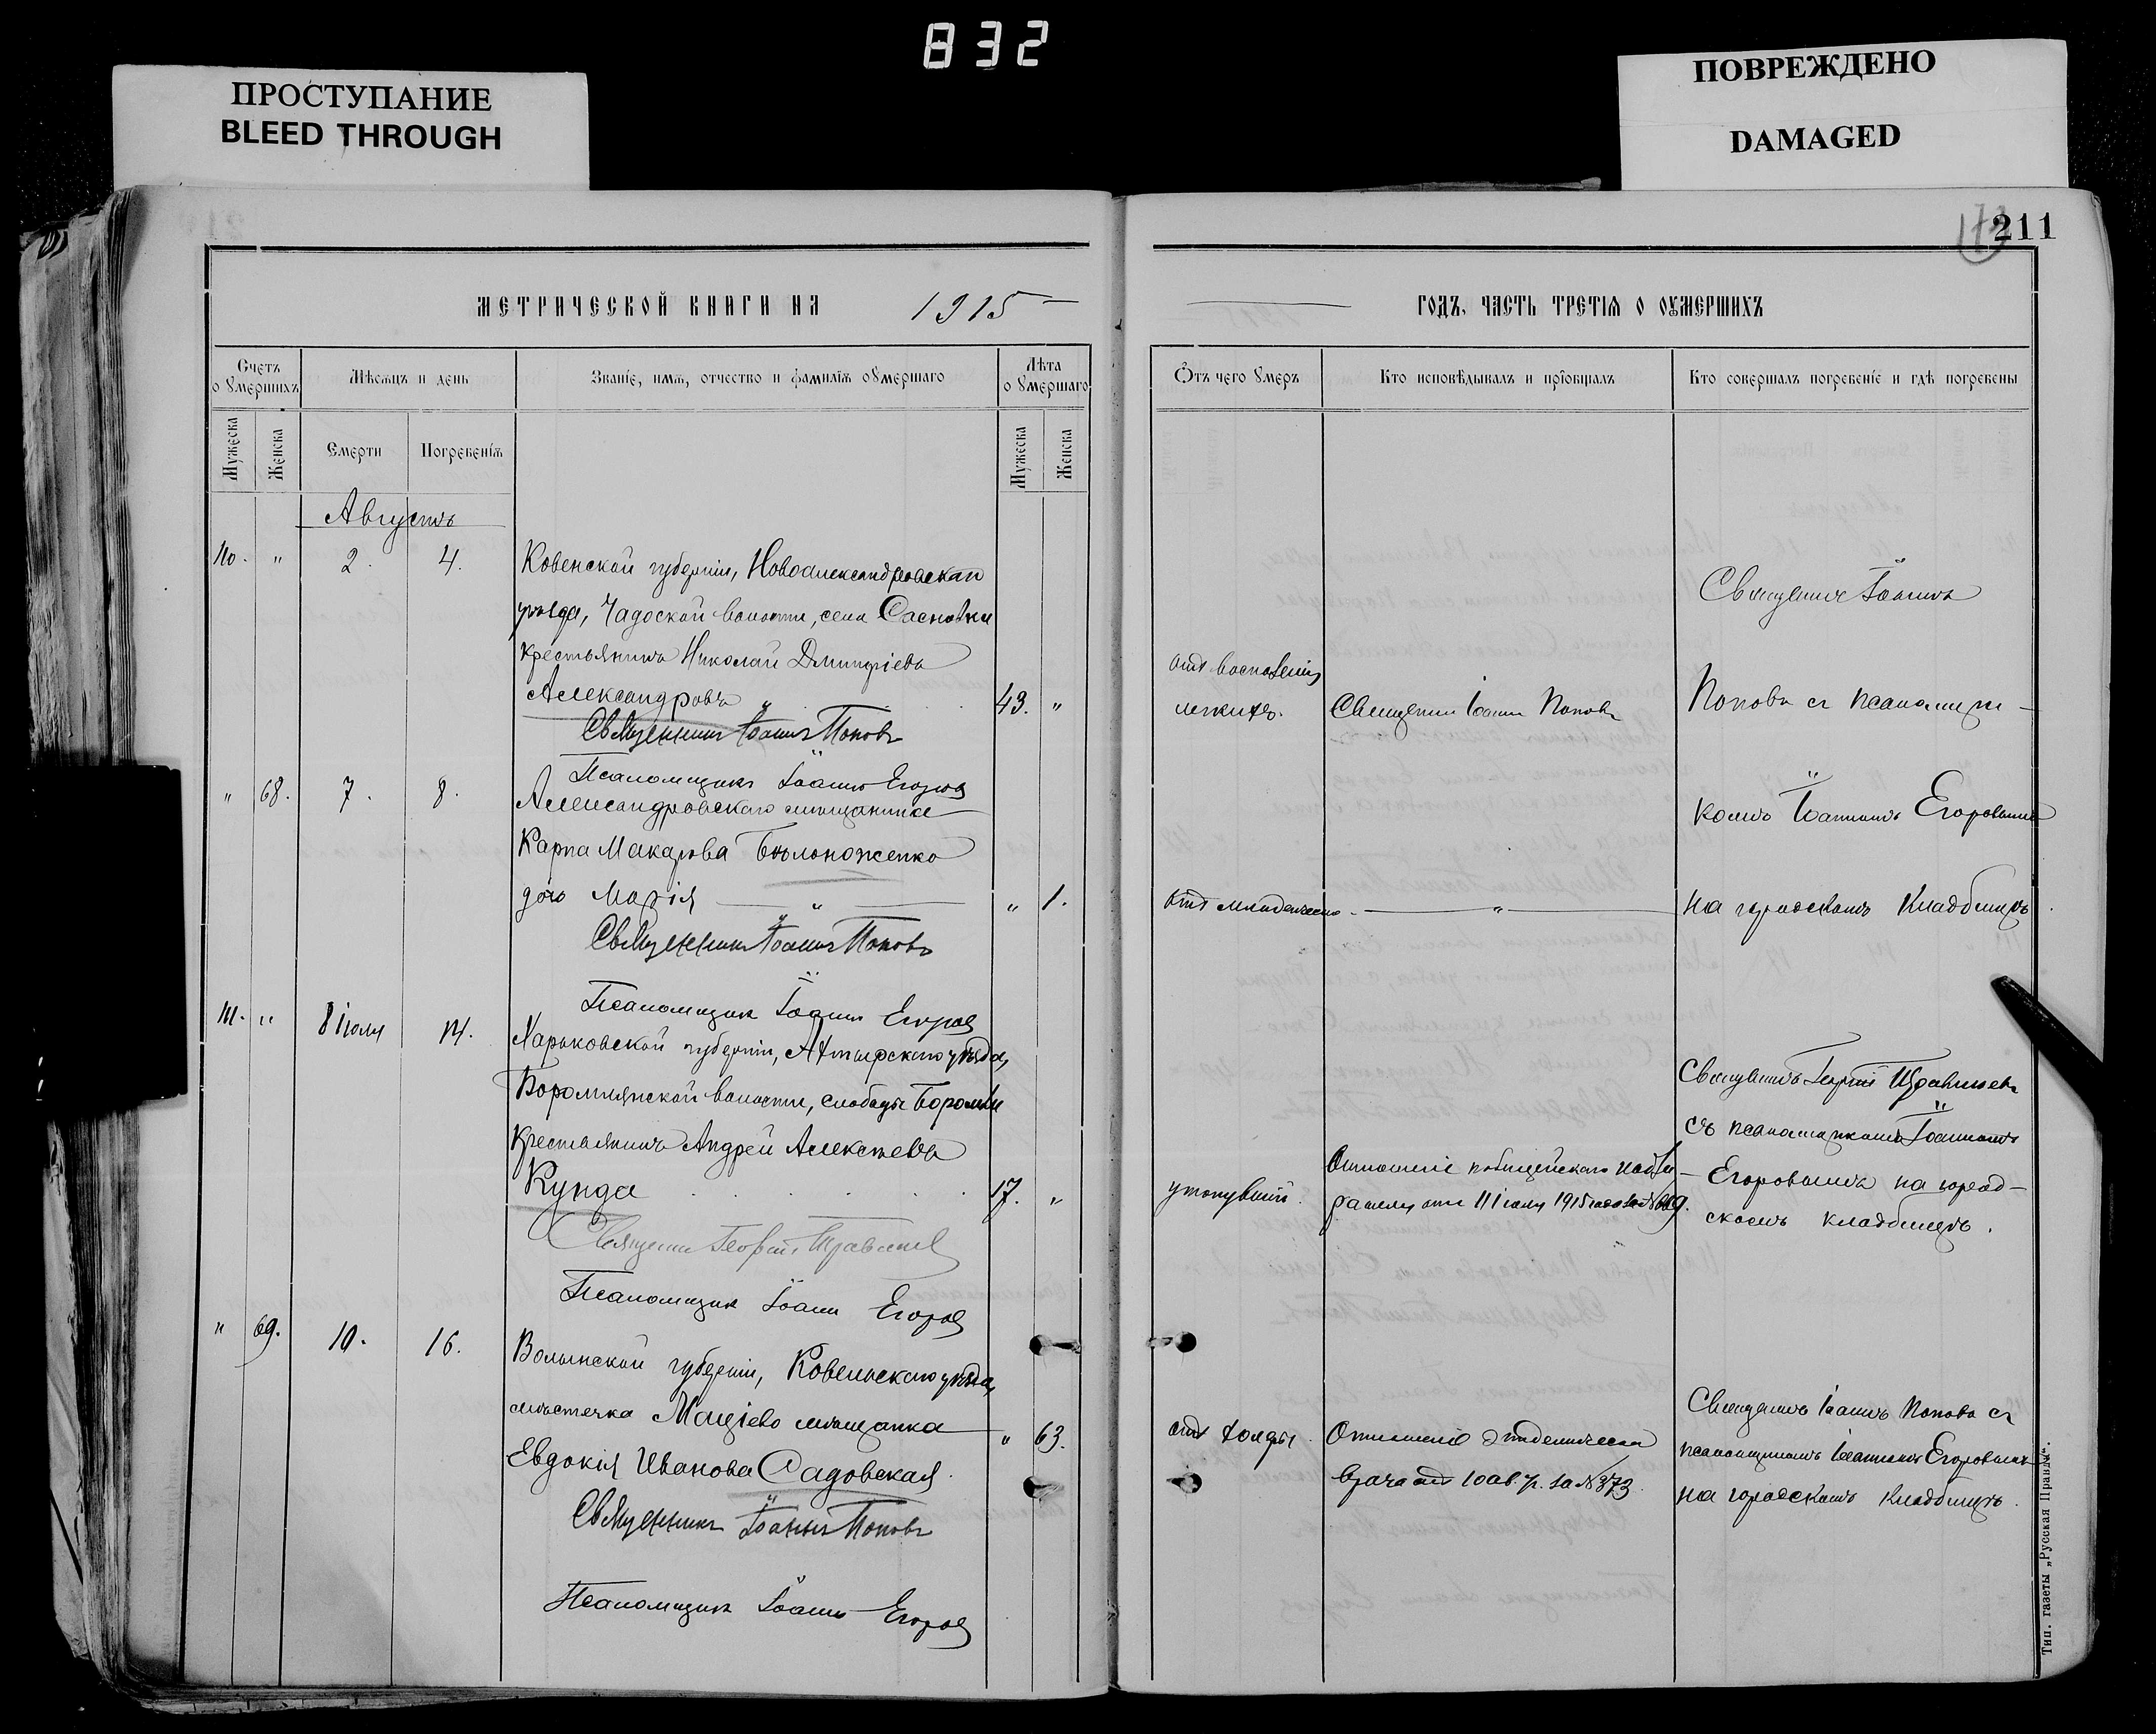 832
ПРОСТУПАНИЕ
BLEED THROUGH
ПОВРЕЖДЕНО
DAMAGED
211
МЕТРИЧЕСКОЙ КНИГИ НА 1915
ГОДЪ, ЧАСТЬ ТРЕТІѦ О ОУМЕРШИХЪ
Счетъ оумершихъ
Мѣсяцъ и день
Званіе, имя, отчество и фамилія оумершаго
Лѣта оумершаго
Мужеска
Женска
Смерти
Погребенія
Мужеска
Женска
Отъ чего умеръ
Кто исповѣдывалъ и пріобщалъ
Кто совершалъ погребеніе и гдѣ погребены
Августъ
110. " 2. 4.
Ковенской губерніи, Новоалександровскаго
уѣзда, Чадоской волости, села Сасновки
крестьянинъ Николай Дмитріевъ
Александровъ 43. "
Священникъ Іоаннъ Поповъ
Псаломщикъ Іоаннъ Егоровъ
отъ воспаленія
легкихъ.
Священникъ Іоаннъ Поповъ
" 68. 7. 8.
Александровскаго мѣщанина
Карпа Макарова Бѣлоноженко
дочь Марія " " 1.
Священникъ Іоаннъ Поповъ
Псаломщикъ Іоаннъ Егоровъ
отъ младенческ. "
Священникъ Іоаннъ
Поповъ съ псаломщи-
комъ Іоанномъ Егоровымъ
на городскомъ кладбищѣ.
111. " 8 Іюля 14.
Харьковской губерніи, Ахтырскаго уѣзда,
Боромлянской волости, слободы Боромли
крестьянинъ Андрей Алексѣевъ
Кунда 17. "
Священникъ Георгій
Псаломщикъ Іоаннъ Егоровъ
утонувшій.
Отношеніе полицейскаго надзи-
рателя отъ 11 Іюля 1915 года за №
Священникъ Георгій
съ псаломщикомъ Іоанномъ
Егоровымъ на город-
скомъ кладбищѣ.
" 69. 10. 16.
Волынской губерніи, Ковельскаго уѣзда,
мѣстечка Маціево мѣщанка " 63.
Евдокія Иванова Садовская.
Священникъ Іоаннъ Поповъ
Псаломщикъ Іоаннъ Егоровъ
отъ холеры.
Отношеніе эпидемическа
врача отъ 10 ав. г. за № 373.
Священникъ Іоаннъ Поповъ съ
псаломщикомъ Іоанномъ Егоровымъ
на городскомъ кладбищѣ.
Тип. газеты „Русская Правда“.